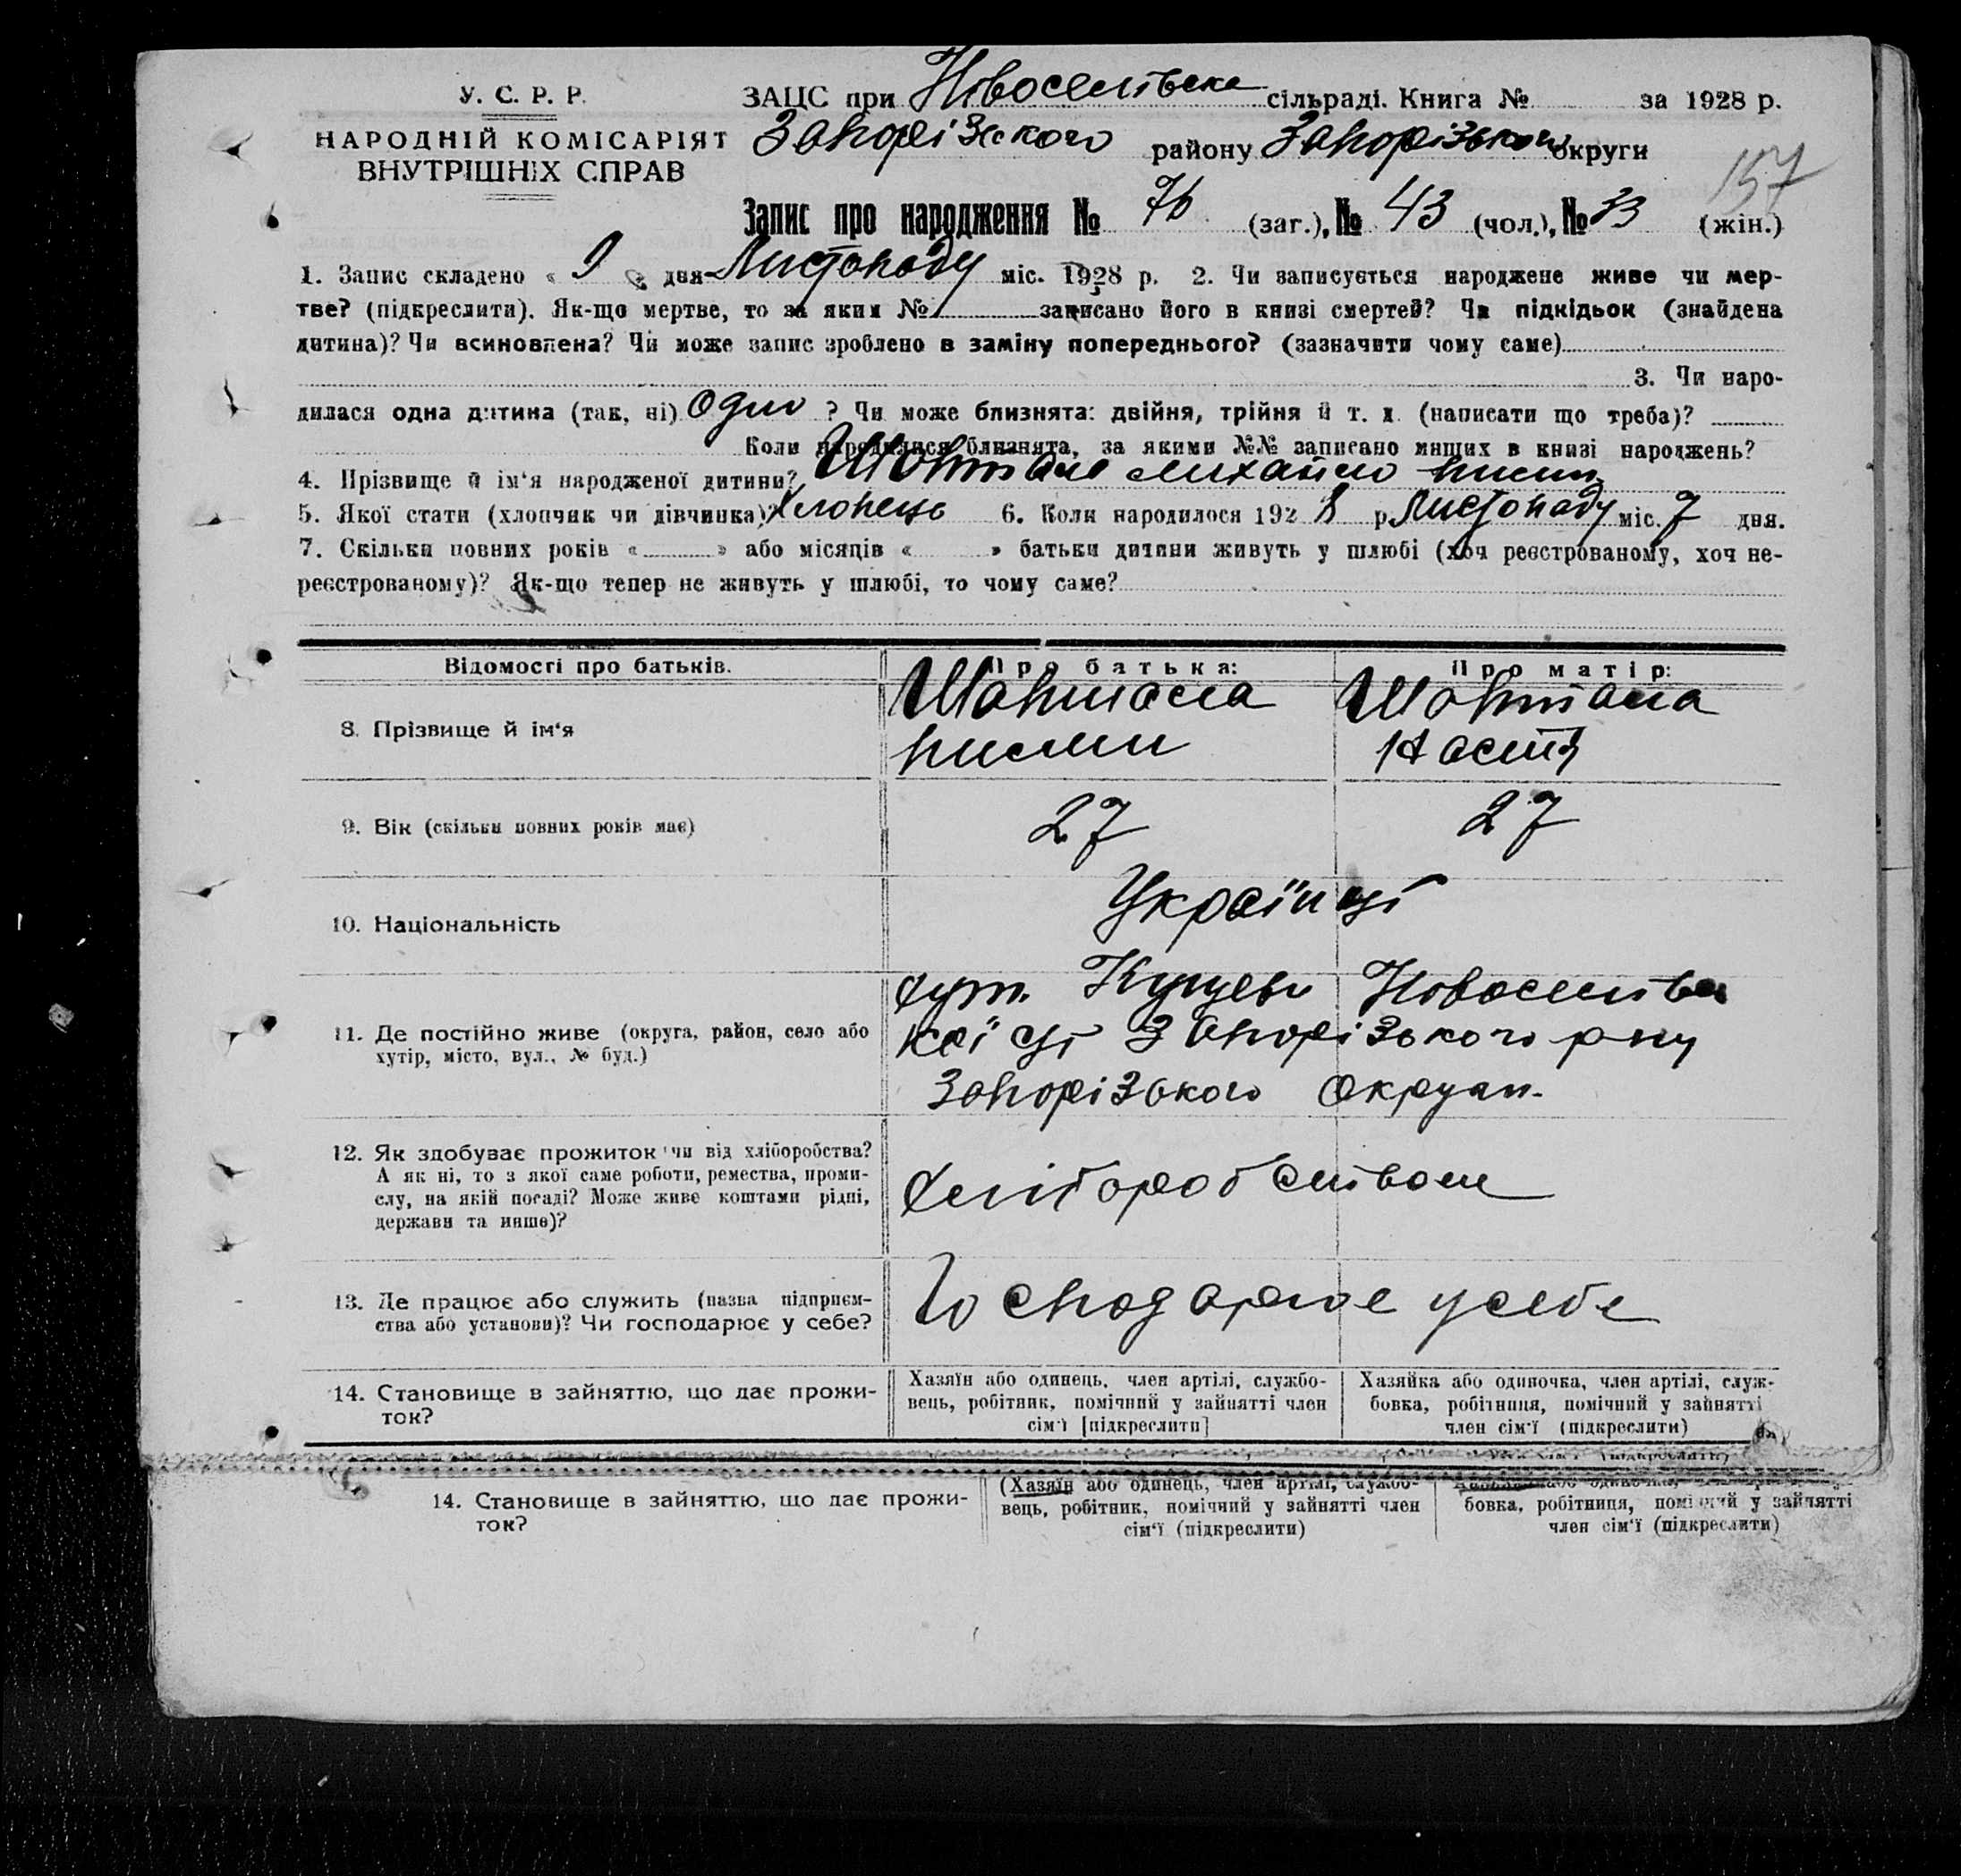 У. С. Р. Р.
НАРОДНІЙ КОМІСАРІЯТ
ВНУТРІШНІХ СПРАВ
ЗАЦС при Новоселівське сільраді. Книга № за 1928 р.
Запорізького району Запорізького округи
157
Запис про народження № 76 (заг.), № 43 (чол.), № 33 (жін.)
1. Запис складено « 9 » дня Листопаду міс. 1928 р. 2. Чи записується народжене живе чи мер-
тве? (підкреслити). Як-що мертве, то за яким № записано його в книзі смертей? Чи підкідьок (знайдена
дитина)? Чи всиновлена? Чи може запис зроблено в заміну попереднього? (зазначити чому саме)
3. Чи наро-
дилася одна дитина (так, ні) одно ? Чи може близнята: двійня, трійня й т. д. (написати що треба)?
Коли народилися близнята, за якими №№ записано инших в книзі народжень?
4. Прізвище й ім‘я народженої дитини? Михайло
5. Якої стати (хлопчик чи дівчинка)? Хлопець 6. Коли народилося 1928 р. Листопаду міс. 7 дня.
7. Скільки повних років « » або місяців « » батьки дитини живуть у шлюбі (хоч реєстрованому, хоч не-
реєстрованому)? Як-що тепер не живуть у шлюбі, то чому саме?
Відомості про батьків. Про батька: Про матір:
8. Прізвище й ім‘я
Настя
9. Вік (скільки повних років має) 27 27
10. Національність Українці
11. Де постійно живе (округа, район, село або
хутір, місто, вул., № буд.)
хут. Новоселівс
кої Запорізького р-ну
Запорізького округи
12. Як здобуває прожиток чи від хліборобства?
А як ні, то з якої саме роботи, ремества, проми-
слу, на якій посаді? Може живе коштами рідні,
держави та инше)?
Хліборобством
13. Де працює або служить (назва підприєм-
ства або установи)? Чи господарює у себе?
Господарює у себе
14. Становище в зайняттю, що дає прожи-
ток?
Хазяїн або одинець, член артілі, службо-
вець, робітник, помічний у зайнятті член
сім‘ї [підкреслити]
Хазяйка або одиночка, член артілі, служ-
бовка, робітниця, помічний у зайнятті
член сім‘ї (підкреслити)
14. Становище в зайняттю, що дає прожи-
ток?
(Хазяїн або одинець, член артілі, службо-
вець, робітник, помічний у зайнятті член
сім‘ї (підкреслити)
бовка, робітниця, помічний у зайнятті
член сім‘ї (підкреслити)